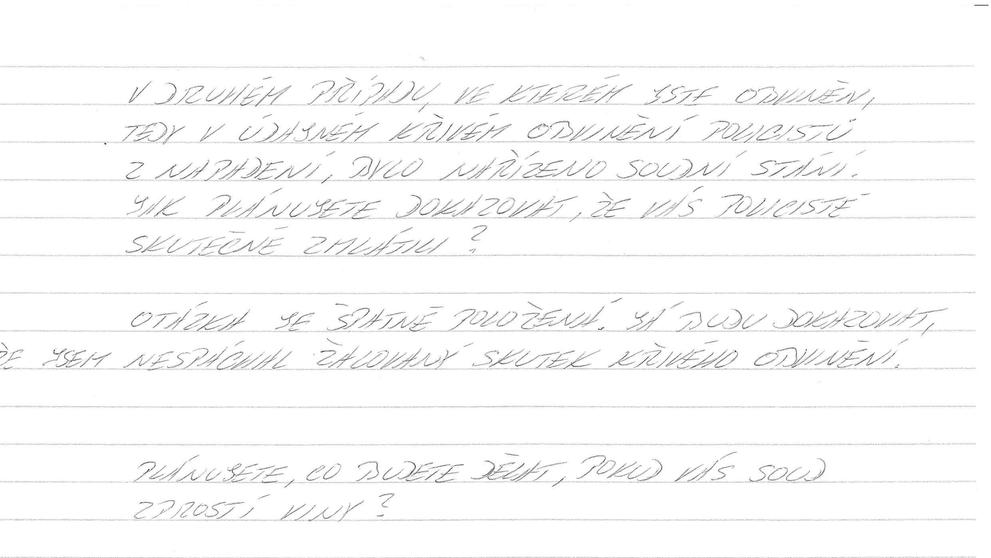 V DRUHÉM PŘÍPADU, VE KTERÉM JSTE OBVINĚN,
TEDY V ÚDAJNÉM KŘIVÉM OBVINĚNÍ POLICISTŮ
Z NAPADENÍ, BYLO NAŘÍZENO SOUDNÍ STÁNÍ.
JAK PLÁNUJETE DOKAZOVAT, ŽE VÁS POLICISTÉ
SKUTEČNĚ ZMLÁTILI?
OTÁZKA JE ŠPATNĚ POLOŽENÁ. JÁ BUDU DOKAZOVAT,
ŽE JSEM NESPÁCHAL ŽALOVANÝ SKUTEK KŘIVÉHO OBVINĚNÍ.
PLÁNUJETE, CO BUDETE DĚLAT, POKUD VÁS SOUD
ZPROSTÍ VINY?